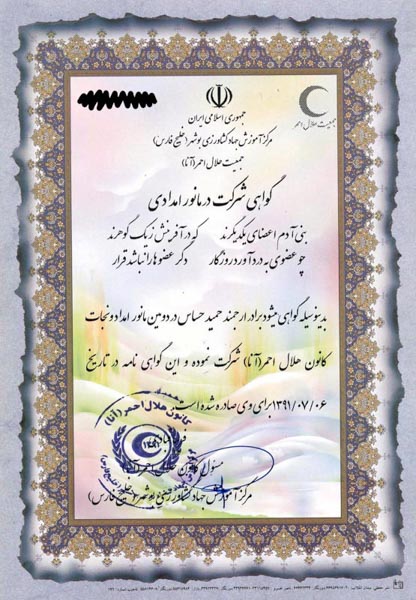 جمعیت هلال احمر
جمهوری اسلامی ایران
مرکز آموزش جهاد کشاورزی بوشهر (خلیج فارس)
جمعیت هلال احمر (آنا)
گواهی شرکت در مانور امدادی
بنی آدم اعضای یکدیگرند که در آفرینش ز یک گوهرند
چو عضوی به درد آورد روزگار دگر عضوها را نباشد قرار
بدینوسیله گواهی میشود برادر ارجمند حمید حساس در دومین مانور امداد و نجات
کانون هلال احمر (آنا) شرکت نموده و این گواهی نامه در تاریخ
۱۳۹۱/۰۷/۰۶ برای وی صادره شده است
کانون هلال احمر (آنا)
مسئول کانون هلال احمر آنا
مرکز آموزش جهاد کشاورزی بوشهر (خلیج فارس)